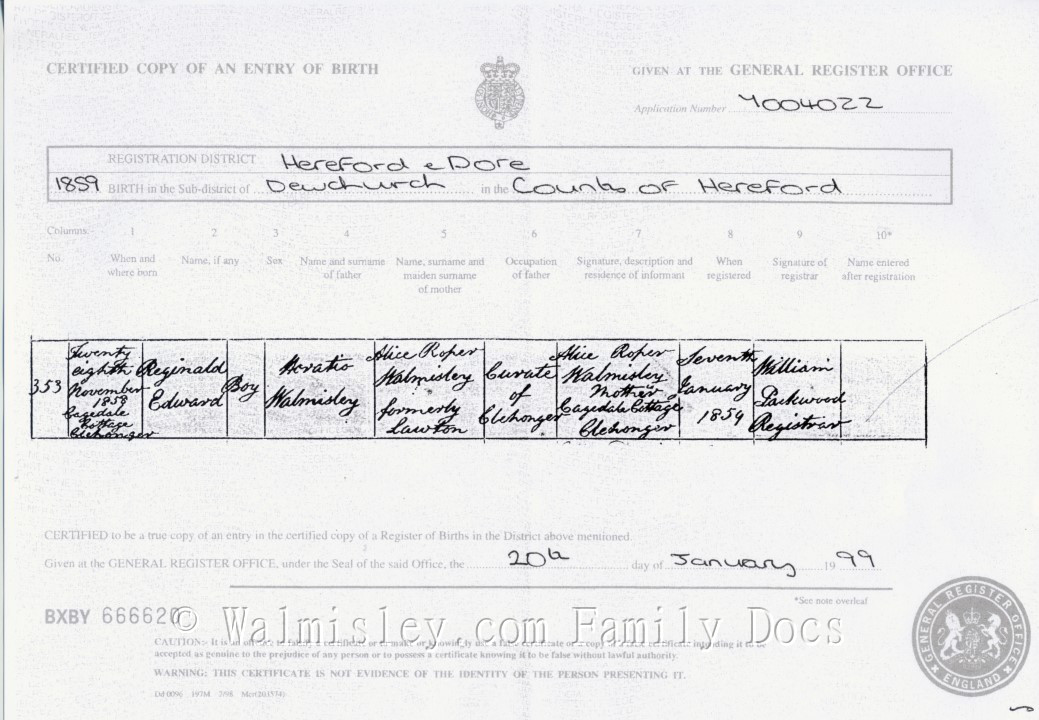 CERTIFIED COPY OF AN ENTRY OF BIRTH
GIVEN AT THE GENERAL REGISTER OFFICE
Application Number Y004022
REGISTRATION DISTRICT Hereford & Dore
1859 BIRTH in the Sub-district of Dewchurch in the County of Hereford
Columns:- 1 2 3 4 5 6 7 8 9 10*
No. When and where born Name, if any Sex Name and surname of father Name, surname and maiden surname of mother Occupation of father Signature, description and residence of informant When registered Signature of registrar Name entered after registration
353
Twenty
eighth
November
1858
Cagedale
Cottage
Clehonger
Reginald
Edward
Boy
Horatio
Walmisley
Alice Roper
Walmisley
formerly
Lawton
Curate
of
Clehonger
Alice Roper
Walmisley
Mother
Cagedale Cottage
Clehonger
Seventh
January
1859
William
Packwood
Registrar
CERTIFIED to be a true copy of an entry in the certified copy of a Register of Births in the District above mentioned.
Given at the GENERAL REGISTER OFFICE, under the Seal of the said Office, the 20th day of January 19 99
*See note overleaf
BXBY 666620
© Walmisley.com Family Docs
CAUTION:- It is an offence to falsify a certificate or to make or knowingly use a false certificate or a copy of a false certificate intending it to be
accepted as genuine to the prejudice of any person or to possess a certificate knowing it to be false without lawful authority.
WARNING: THIS CERTIFICATE IS NOT EVIDENCE OF THE IDENTITY OF THE PERSON PRESENTING IT.
GENERAL REGISTER OFFICE
ENGLAND